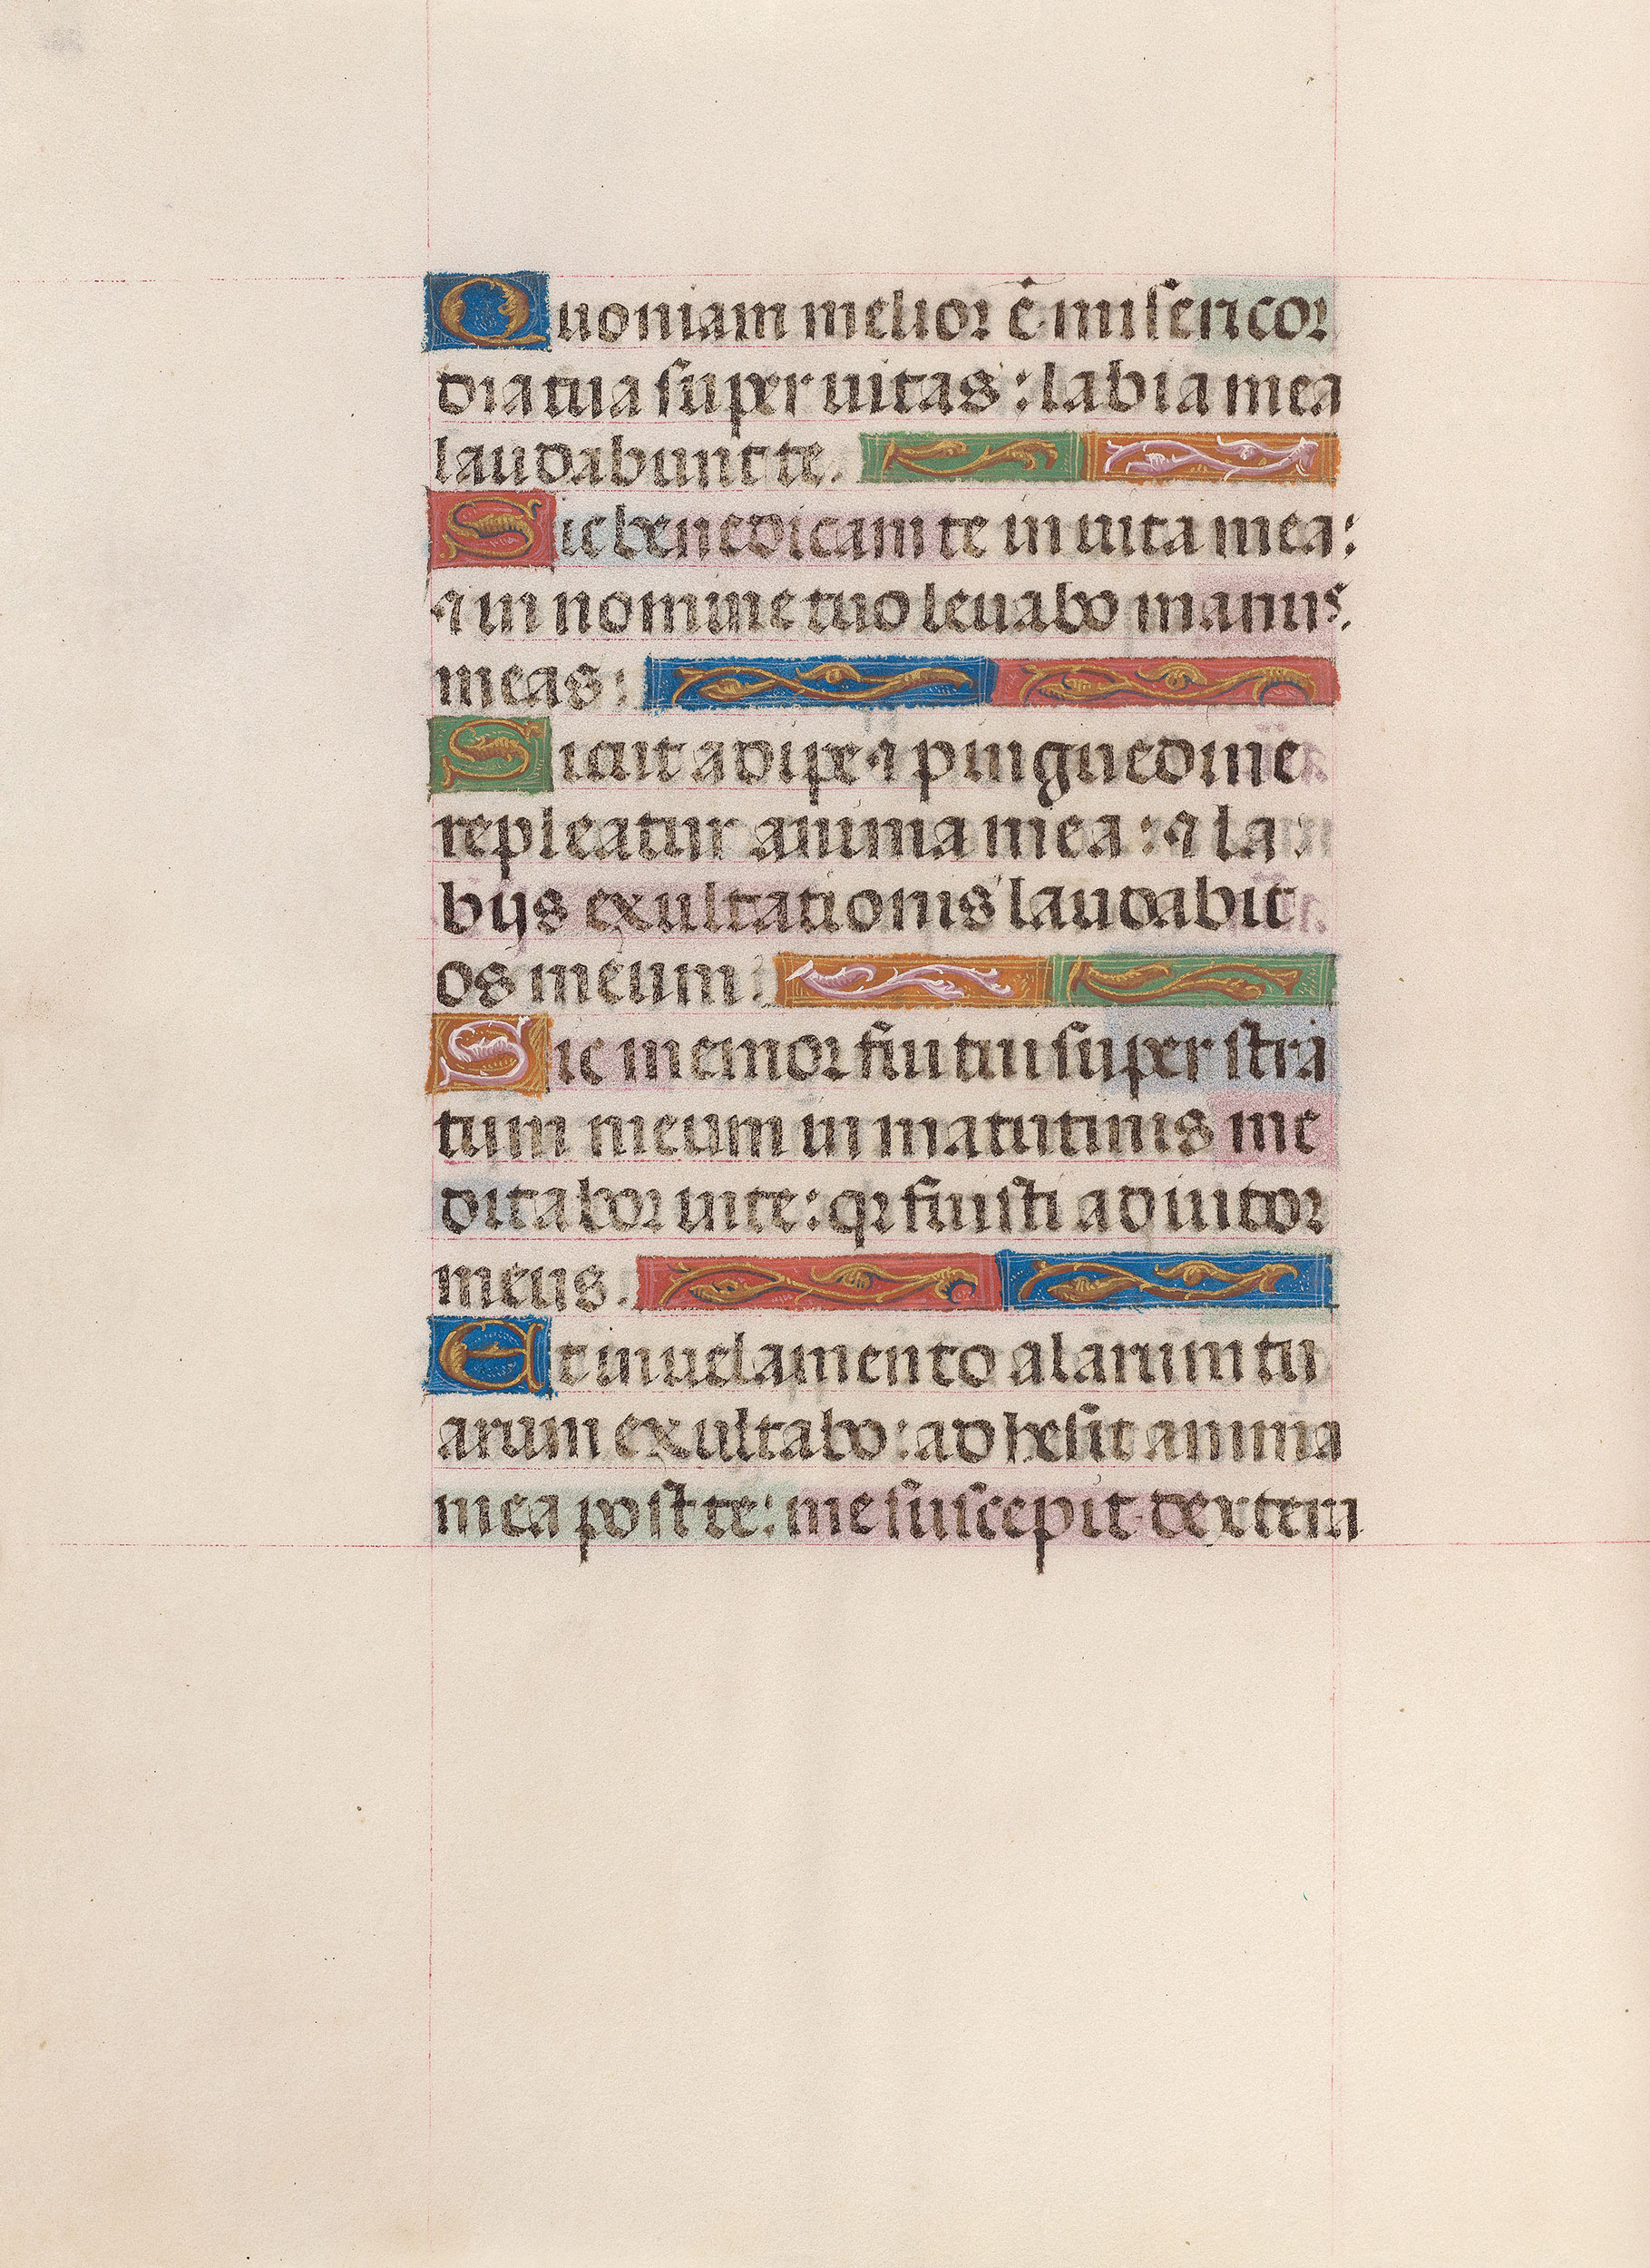 Quoniam melior ē misericor
dia tua super uitas : labia mea
laudabunt te.
Sic benedicam te in uita mea :
⁊ in nomine tuo leuabo manus
meas :
Sicut adipe ⁊ pinguedine
repleatur anima mea : ⁊ la
bijs exultationis laudabit
os meum :
Sic memor fui tui super stra
tum meum in matutinis me
ditabor in te : qr fuisti adiutor
meus.
Et in uelamento alarum tu
arum exultabo : adhesit anima
mea post te : me suscepit dextera